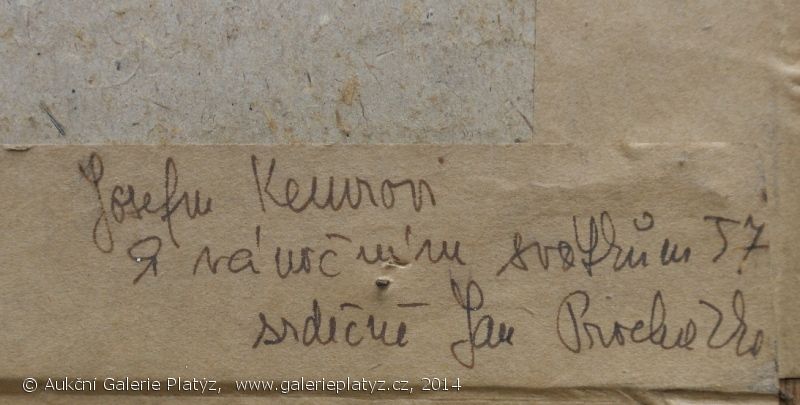 Josefu Kemrovi
k vánočním svátkům 57
srdečně Jan Procházka
© Aukční Galerie Platýz, www.galerieplatyz.cz, 2014